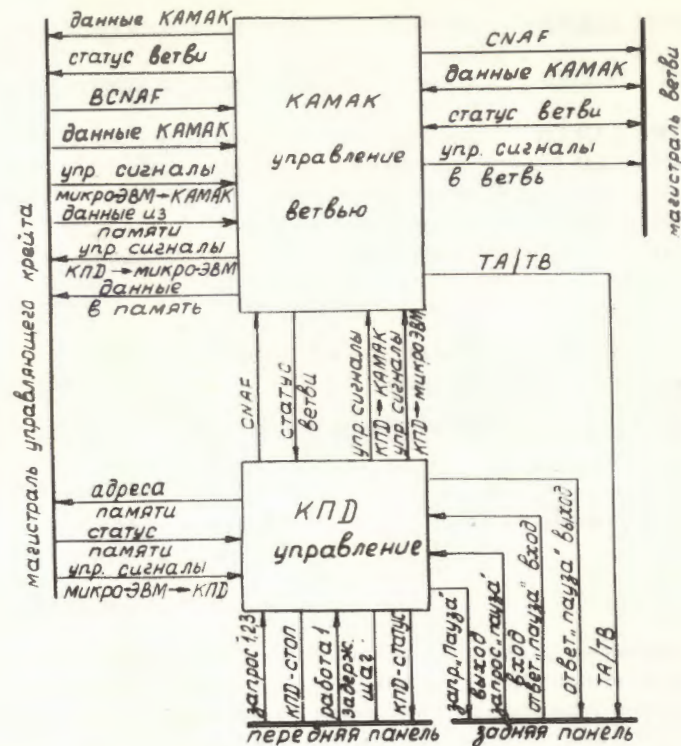 данные КАМАК
статус ветви
BCNAF
данные КАМАК
упр. сигналы
микроЭВМ→КАМАК
данные из
памяти
упр. сигналы
КПД→микроЭВМ
данные
в память
магистраль управляющего крейта
КАМАК
управление
ветвью
CNAF
данные КАМАК
статус ветви
упр. сигналы
в ветвь
магистраль ветви
ТА/ТВ
CNAF
статус
ветви
упр. сигналы
КПД→КАМАК
упр. сигналы
КПД→микроЭВМ
адреса
памяти
статус
памяти
упр. сигналы
микроЭВМ→КПД
КПД
управление
запрос 1,2,3
КПД-стоп
работа 1
задерж.
шаг
КПД-статус
передняя панель
запр. „Пауза"
выход
запрос „пауза"
вход
ответ „пауза" вход
ответ „пауза" выход
ТА/ТВ
задняя панель